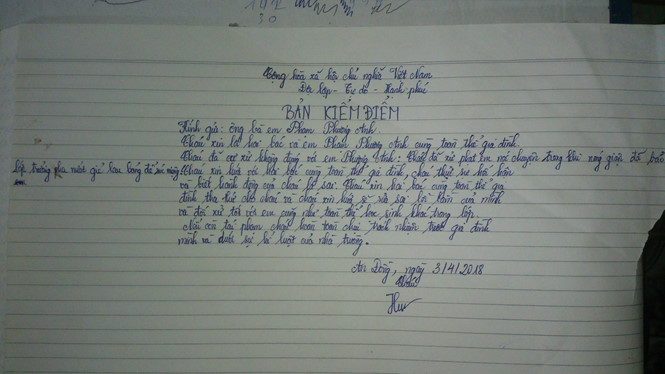 Cộng hòa xã hội chủ nghĩa Việt Nam
Độc lập - Tự do - Hạnh phúc
BẢN KIỂM ĐIỂM
Kính gửi: Ông bà em Phạm Phương Anh.
Cháu xin lỗi hai bác và em Phạm Phương Anh cùng toàn thể gia đình.
Cháu đã cư xử không đúng với em Phương Anh: Cháu đã xử phạt em nói chuyện trong khi nóng giận đã bắt
lớp trưởng pha nước giẻ lau bảng để súc miệng. Cháu xin lỗi với hai bác cùng toàn thể gia đình, cháu thực sự hối hận
và biết hành động của cháu là sai. Cháu xin hai bác cùng toàn thể gia
đình tha thứ cho cháu và cháu xin hứa sẽ sửa sai lỗi lầm của mình
và đối xử tốt với em cũng như toàn thể học sinh khác trong lớp.
Nếu còn tái phạm cháu hoàn toàn chịu trách nhiệm trước gia đình
mình và dưới sự kỉ luật của nhà trường.
An Đồng, ngày 3/4/2018